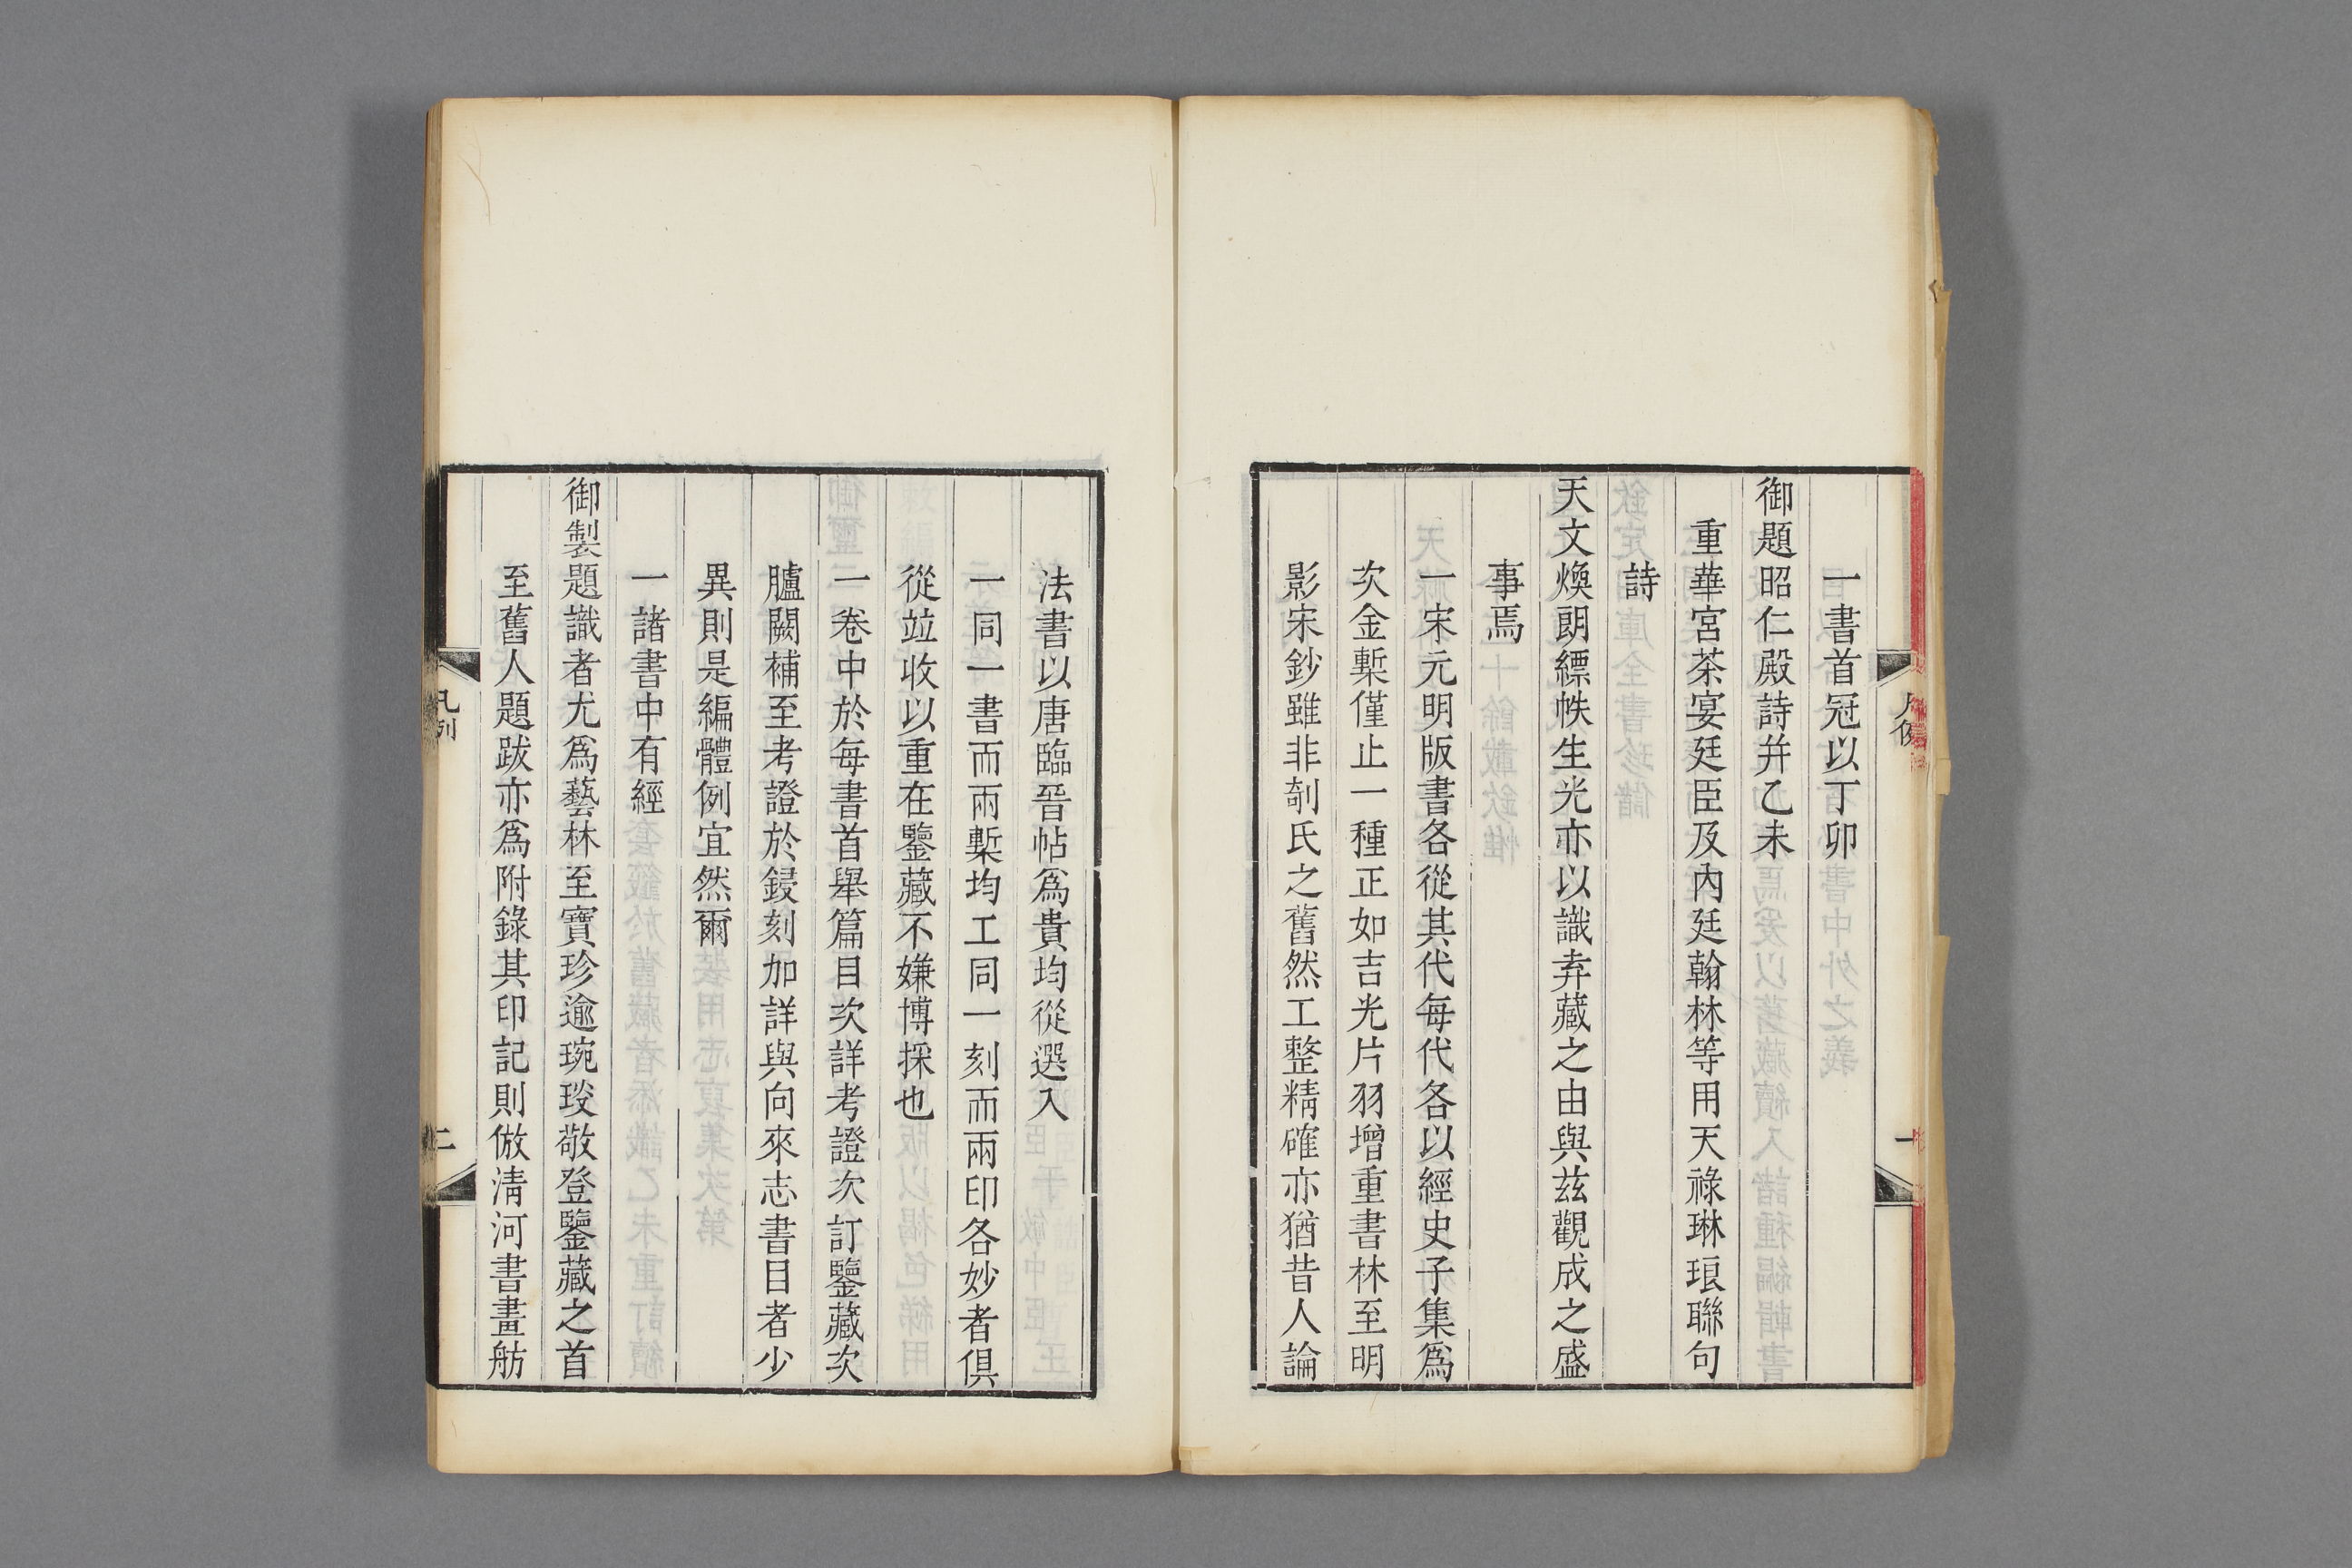 一書首冠以丁卯
御題昭仁殿詩并乙未
重華宮茶宴廷臣及內廷翰林等用天祿琳琅聯句
詩
天文煥朗縹帙生光亦以識弆藏之由與茲觀成之盛
事焉
一宋元明版書各從其代每代各以經史子集爲
次金槧僅止一種正如吉光片羽增重書林至明
影宋鈔雖非剞氏之舊然工整精確亦猶昔人論
法書以唐臨晉帖爲貴均從選入
一同一書而兩槧均工同一刻而兩印各妙者俱
從竝收以重在鑒藏不嫌博採也
一卷中於每書首舉篇目次詳考證次訂鑒藏次
臚闕補至考證於鋟刻加詳與向來志書目者少
異則是編體例宜然爾
一諸書中有經
御製題識者尤爲藝林至寶珍逾琬琰敬登鑒藏之首
至舊人題跋亦爲附錄其印記則倣淸河書畫舫
二